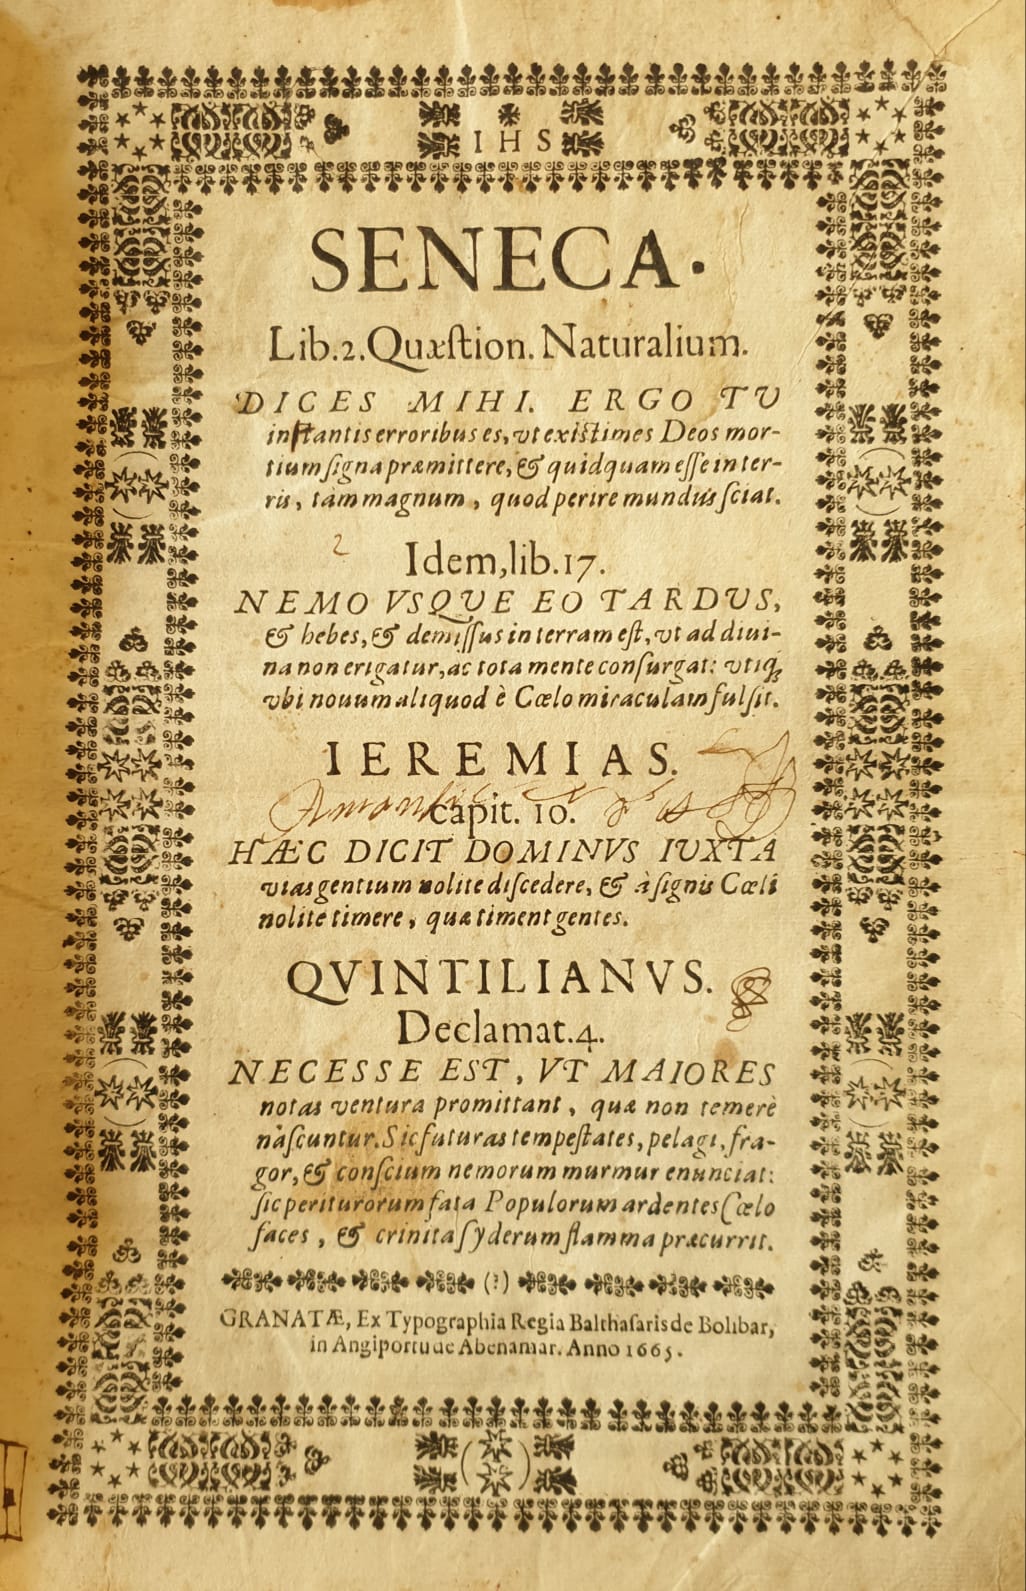 IHS
SENECA.
Lib.2.Quæstion. Naturalium.
DICES MIHI. ERGO TV
in tantis erroribus es, vt existimes Deos mor-
tium signa præmittere, & quidquam esse in ter-
ris, tàm magnum, quod perire mundus sciat.
2
Idem, lib.17.
NEMO VSQVE EO TARDVS,
& hebes, & demissus in terram est, vt ad diui-
na non erigatur, ac tota mente consurgat: vtiq;
vbi nouum aliquod è Cœlo miraculam fulsit.
IEREMIAS.
capit. 10.
HÆC DICIT DOMINVS IVXTA
vias gentium nolite discedere, & à signis Cœli
nolite timere, quæ timent gentes.
QVINTILIANVS.
Declamat.4.
NECESSE EST, VT MAIORES
notas ventura promittant, quæ non temerè
nascuntur. Sic futuras tempestates, pelagi, fra-
gor, & conscium nemorum murmur enunciat:
sic periturorum fata Populorum ardentes Cœlo
faces, & crinita syderum flamma præcurrit.
(?)
GRANATÆ, Ex Typographia Regia Balthasaris de Bolibar,
in Angiportu de Abenamar. Anno 1665.